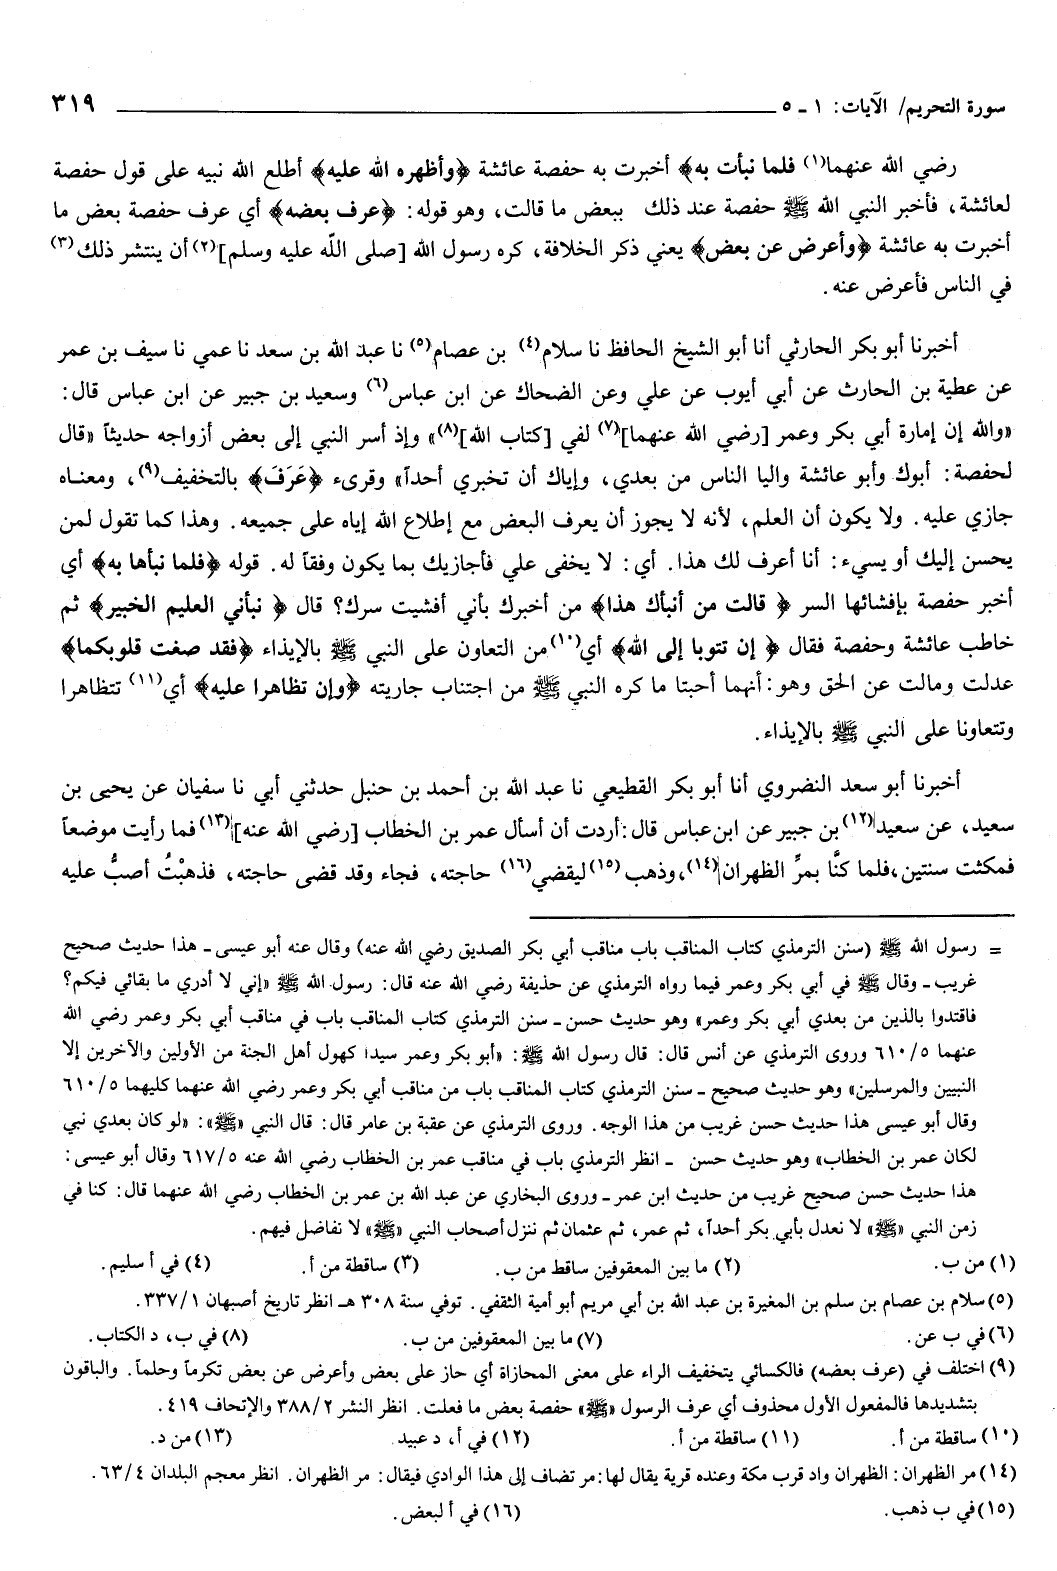 سورة التحريم/ الآيات: ١ ـ ٥ ٣١٩
رضي الله عنهما(١) فلما نبأت به﴾ أخبرت به حفصة عائشة ﴿وأظهره الله عليه﴾ أطلع الله نبيه على قول حفصة
لعائشة، فأخبر النبي الله ﷺ حفصة عند ذلك ببعض ما قالت، وهو قوله: ﴿عرف بعضه﴾ أي عرف حفصة بعض ما
أخبرت به عائشة ﴿وأعرض عن بعض﴾ يعني ذكر الخلافة، كره رسول الله [صلى الله عليه وسلم](٢) أن ينتشر ذلك(٣)
في الناس فأعرض عنه.
أخبرنا أبو بكر الحارثي أنا أبو الشيخ الحافظ نا سلام(٤) بن عصام(٥) نا عبد الله بن سعد نا عمي نا سيف بن عمر
عن عطية بن الحارث عن أبي أيوب عن علي وعن الضحاك عن ابن عباس(٦) وسعيد بن جبير عن ابن عباس قال:
«والله إن إمارة أبي بكر وعمر [رضي الله عنهما](٧) لفي [كتاب الله](٨)» وإذ أسر النبي إلى بعض أزواجه حديثاً «قال
لحفصة: أبوك وأبو عائشة واليا الناس من بعدي، وإياك أن تخبري أحداً» وقرىء ﴿عَرَفَ﴾ بالتخفيف(٩)، ومعناه
جازي عليه. ولا يكون أن العلم، لأنه لا يجوز أن يعرف البعض مع إطلاع الله إياه على جميعه. وهذا كما تقول لمن
يحسن إليك أو يسيء: أنا أعرف لك هذا. أي: لا يخفى علي فأجازيك بما يكون وفقاً له. قوله ﴿فلما نبأها به﴾ أي
أخبر حفصة بإفشائها السر ﴿ قالت من أنبأك هذا﴾ من أخبرك بأني أفشيت سرك؟ قال ﴿ نبأني العليم الخبير﴾ ثم
خاطب عائشة وحفصة فقال ﴿ إن تتوبا إلى الله﴾ أي(١٠) من التعاون على النبي ﷺ بالإيذاء ﴿فقد صغت قلوبكما﴾
عدلت ومالت عن الحق وهو: أنهما أحبتا ما كره النبي ﷺ من اجتناب جاريته ﴿وإن تظاهرا عليه﴾ أي(١١) تتظاهرا
وتتعاونا على النبي ﷺ بالإيذاء.
أخبرنا أبو سعد النضروي أنا أبو بكر القطيعي نا عبد الله بن أحمد بن حنبل حدثني أبي نا سفيان عن يحيى بن
سعيد، عن سعيد(١٢) بن جبير عن ابن عباس قال: أردت أن أسأل عمر بن الخطاب [رضي الله عنه](١٣) فما رأيت موضعاً
فمكثت سنتين، فلما كنَّا بمرِّ الظهران(١٤)، وذهب(١٥) ليقضي(١٦) حاجته، فجاء وقد قضى حاجته، فذهبْتُ أصبُّ عليه
= رسول الله ﷺ (سنن الترمذي كتاب المناقب باب مناقب أبي بكر الصديق رضي الله عنه) وقال عنه أبو عيسى ـ هذا حديث صحيح
غريب ـ وقال ﷺ في أبي بكر وعمر فيما رواه الترمذي عن حذيفة رضي الله عنه قال: رسول الله ﷺ «إني لا أدري ما بقائي فيكم؟
فاقتدوا بالذين من بعدي أبي بكر وعمر» وهو حديث حسن ـ سنن الترمذي كتاب المناقب باب في مناقب أبي بكر وعمر رضي الله
عنهما ٥/ ٦١٠ وروى الترمذي عن أنس قال: قال رسول الله ﷺ: «أبو بكر وعمر سيدا كهول أهل الجنة من الأولين والآخرين إلا
النبيين والمرسلين» وهو حديث صحيح ـ سنن الترمذي كتاب المناقب باب من مناقب أبي بكر وعمر رضي الله عنهما كليهما ٥/ ٦١٠
وقال أبو عيسى هذا حديث حسن غريب من هذا الوجه. وروى الترمذي عن عقبة بن عامر قال: قال النبي «ﷺ»: «لو كان بعدي نبي
لكان عمر بن الخطاب» وهو حديث حسن ـ انظر الترمذي باب في مناقب عمر بن الخطاب رضي الله عنه ٥/ ٦١٧ وقال أبو عيسى:
هذا حديث حسن صحيح غريب من حديث ابن عمر ـ وروى البخاري عن عبد الله بن عمر بن الخطاب رضي الله عنهما قال: كنا في
زمن النبي «ﷺ» لا نعدل بأبي بكر أحداً، ثم عمر، ثم عثمان ثم ننزل أصحاب النبي «ﷺ» لا نفاضل فيهم.
(١) من ب. (٢) ما بين المعقوفين ساقط من ب. (٣) ساقطة من أ. (٤) في أ سليم.
(٥) سلام بن عصام بن سلم بن المغيرة بن عبد الله بن أبي مريم أبو أمية الثقفي. توفي سنة ٣٠٨ هـ انظر تاريخ أصبهان ١/ ٣٣٧.
(٦) في ب عن. (٧) ما بين المعقوفين من ب. (٨) في ب، د الكتاب.
(٩) اختلف في (عرف بعضه) فالكسائي يتخفيف الراء على معنى المحازاة أي حاز على بعض وأعرض عن بعض تكرماً وحلماً. والباقون
بتشديدها فالمفعول الأول محذوف أي عرف الرسول «ﷺ» حفصة بعض ما فعلت. انظر النشر ٢/ ٣٨٨ والإتحاف ٤١٩.
(١٠) ساقطة من أ. (١١) ساقطة من أ. (١٢) في أ، د عبيد. (١٣) من د.
(١٤) مر الظهران: الظهران واد قرب مكة وعنده قرية يقال لها: مر تضاف إلى هذا الوادي فيقال: مر الظهران. انظر معجم البلدان ٤/ ٦٣.
(١٥) في ب ذهب. (١٦) في أ لبعض.